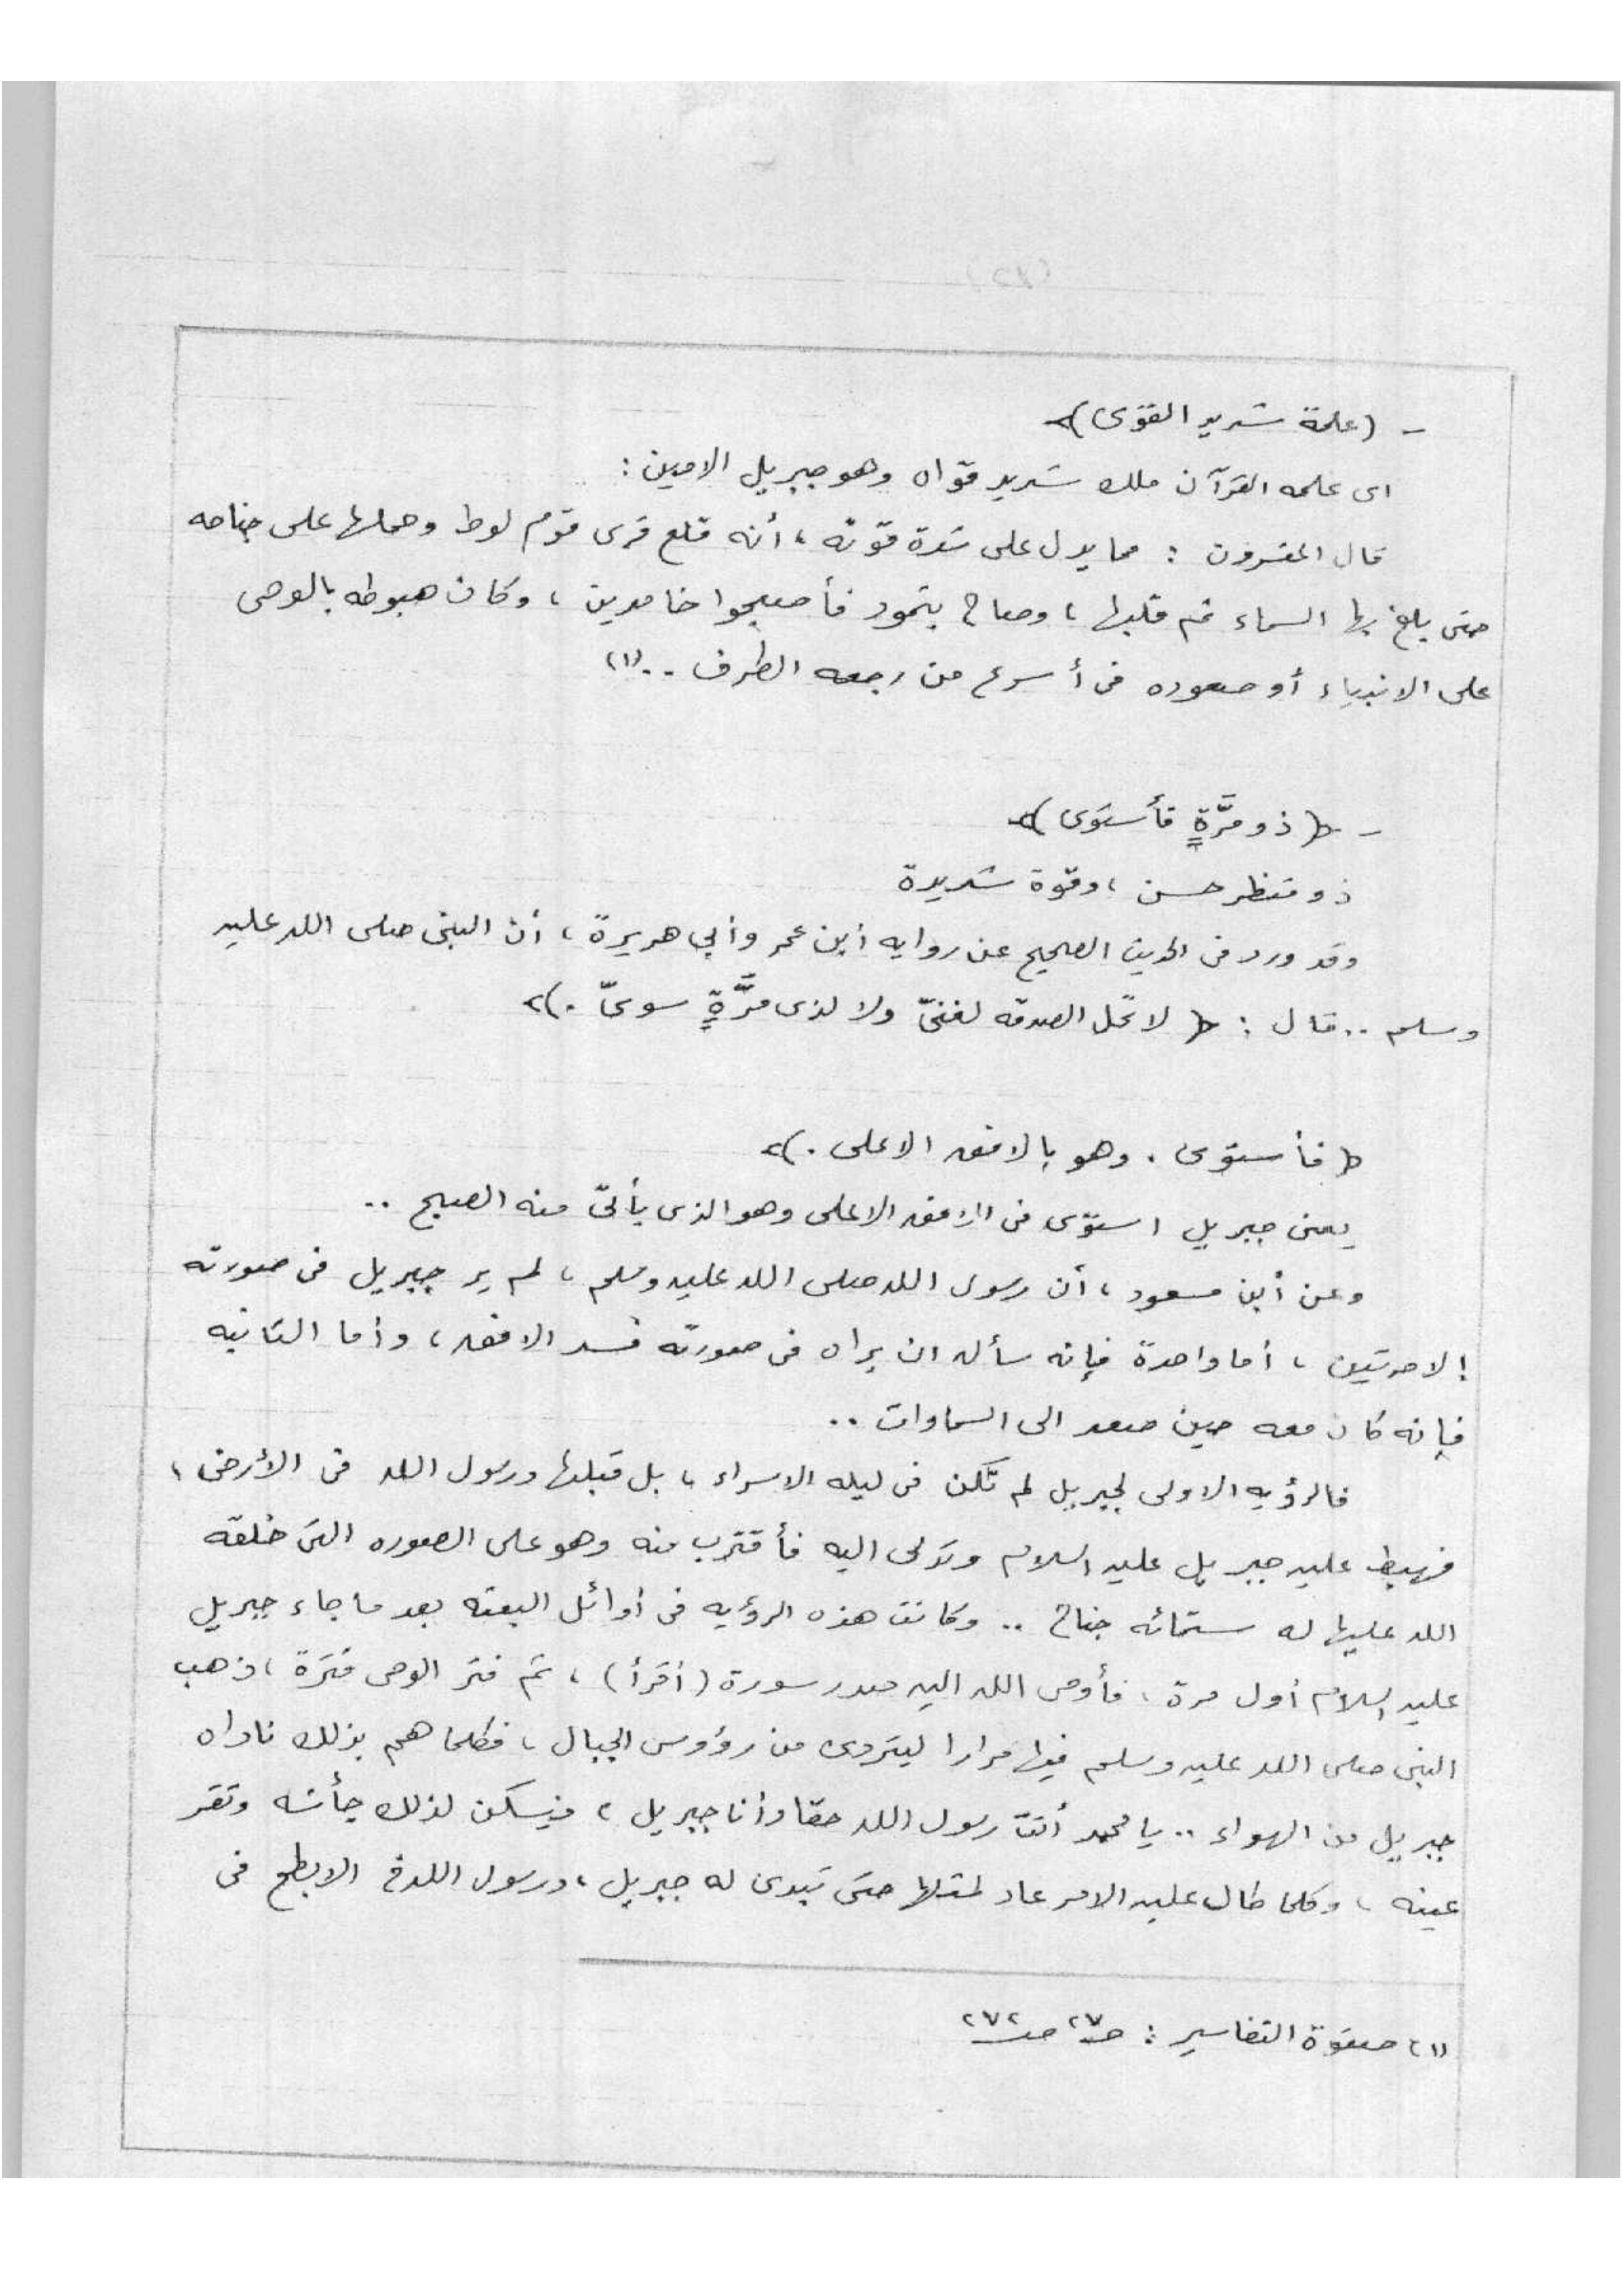 - (علمة شديد القوى)
اى علمه القرآن ملك شديد قوّاه وهو جبريل الامين :
قال المفسرون : مما يدل على شدة قوّته ، أنه قلع قرى قوم لوط وحملها على جناحه
حتى بلغ بها السماء ثم قلبها ، وصاح بثمود فأصبحوا خامدين ، وكان هبوطه بالوحى
على الانبياء أو صعوده فى أسرع من رجعه الطرف ..(١)
- ( ذو مَّرَّةٍ فأستوى )
ذو منظر حسن ، وقوة شديدة
وقد ورد فى الحديث الصحيح عن روايه أبن عمر وأبي هريرة ، أن النبى صلى الله عليه
وسلم .. قال : ( لا تحل الصدقه لغنىّ ولا لذى مَّرَّةٍ سوىّ . )
( فأستوى . وهو بالافق الاعلى . )
يعنى جبريل استوى فى الافق الاعلى وهو الذى يأتى منه الصبح ..
وعن أبن مسعود ، أن رسول الله صلى الله عليه وسلم ، لم ير جبريل فى صورته
إلا مرتين ، أما واحدة فإنه سأله ان يراه فى صورته فسد الافق ، وأما الثانيه
فإنه كان معه حين صعد الى السماوات ..
فالرؤيه الاولى لجبريل لم تكن فى ليله الاسراء ، بل قبلها ورسول الله فى الأرض ،
فهبط عليه جبريل عليه السلام وتدلى اليه فأقترب منه وهو على الصوره التى خلقه
الله عليها له ستمائه جناح .. وكانت هذه الرؤيه فى أوائل البعثه بعد ما جاء جبريل
عليه السلام أول مرة ، فأوحى الله اليه صدر سورة (أقرأ) ، ثم فتر الوحى فترة ، ذهب
النبى صلى الله عليه وسلم فيها مرارا ليتردى من رؤوس الجبال ، فكلما هم بذلك ناداه
جبريل من الهواء .. يا محمد أنت رسول الله حقا وأنا جبريل ، فيسكن لذلك جأشه وتقر
عينه ، وكلما طال عليه الامر عاد لمثلها حتى تبدى له جبريل ، ورسول الله فى الابطح فى
(١) صفوة التفاسير : حـ٢٧ صـ٢٧٢